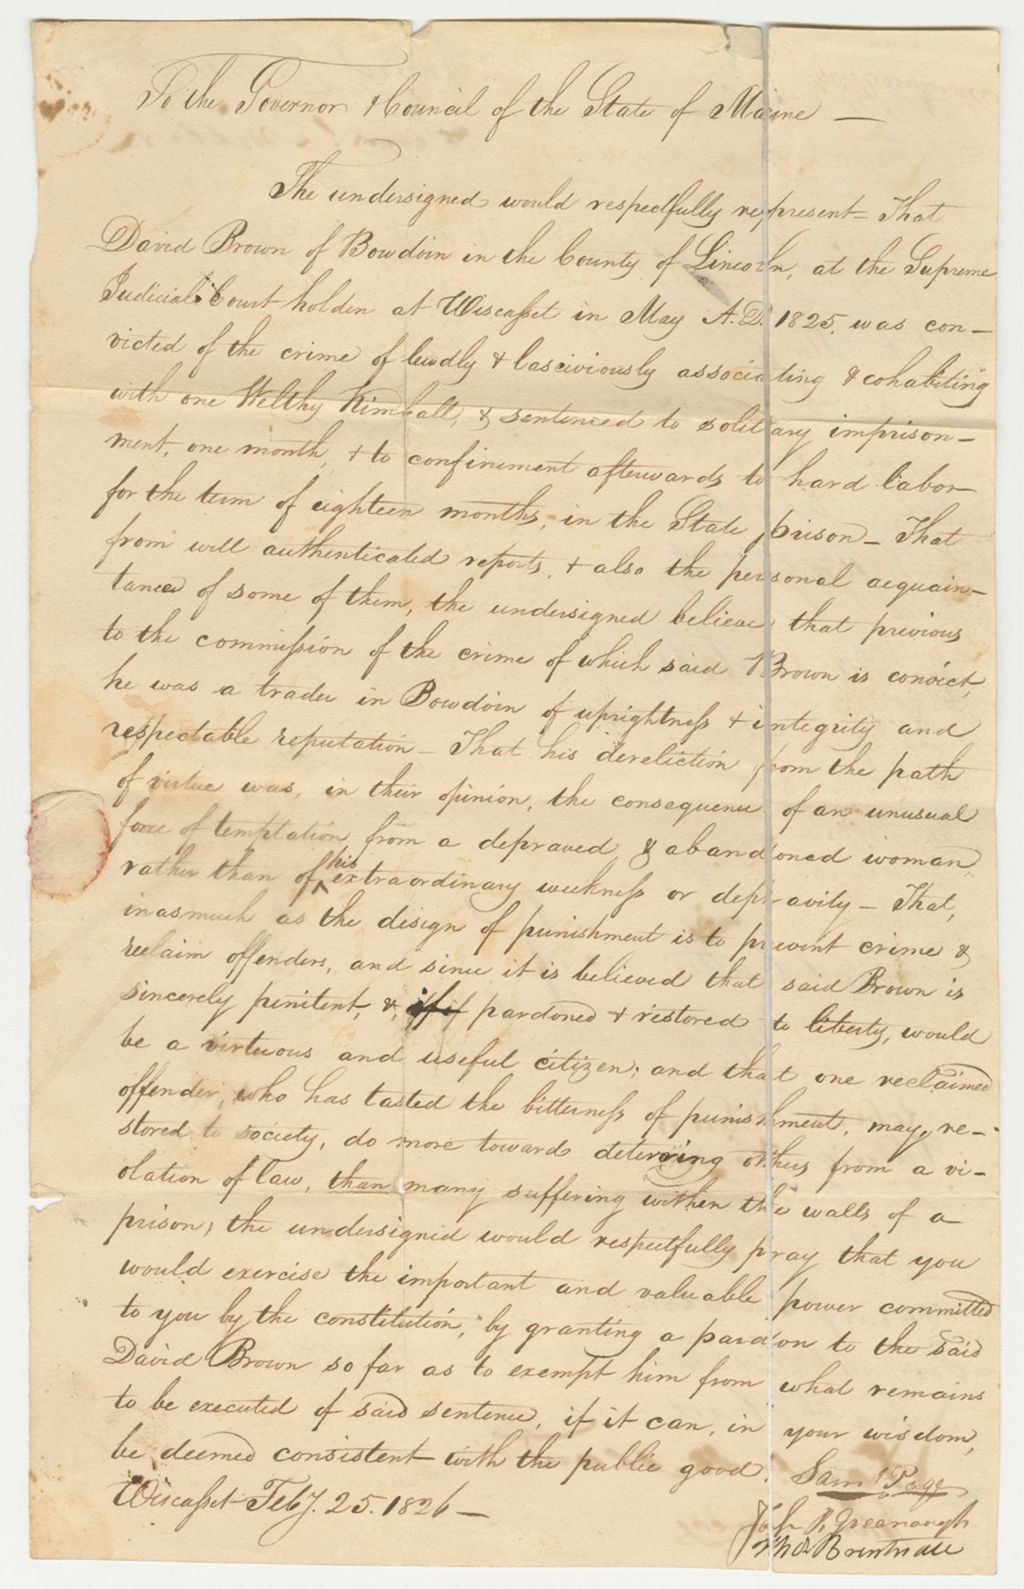 To the Governor & Council of the State of Maine —
The undersigned would respectfully represent – That
David Brown of Bowdoin in the County of Lincoln, at the Supreme
Judicial Court holden at Wiscasset in May A.D. 1825. was con–
victed of the crime of lewdly & lasciviously associating & cohabiting
with one Welthy Kimball, & sentenced to solitary imprison–
ment, one month, & to confinement afterwards to hard labor
for the term of eighteen months, in the State prison – That
from well authenticated reports, & also the personal acquain–
tance of some of them, the undersigned believe that previous
to the commission of the crime of which said Brown is convict,
he was a trader in Bowdoin of uprightness & integrity and
respectable reputation – That his dereliction from the path
of virtue was, in their opinion, the consequence of an unusual
force of temptation from a depraved & abandoned woman,
rather than of his extraordinary weekness or depravity – That,
inasmuch as the design of punishment is to prevent crime &
reclaim offenders, and since it is believed that said Brown is
sincerely penitent, &, if pardoned & restored to liberty, would
be a virtuous and useful citizen; and that one reclaimed
offender, who has tasted the bitterness of punishment, may, re–
stored to society, do more toward deterring others from a vi–
olation of law, than many suffering within the walls of a
prison; the undersigned would respectfully pray that you
would exercise the important and valuable power committed
to you by the constitution, by granting a pardon to the said
David Brown so far as to exempt him from what remains
to be executed of said sentence, if it can, in your wisdom,
be deemed consistent with the public good.
Saml Page
Wiscasset Feby. 25. 1826 —
Greenough